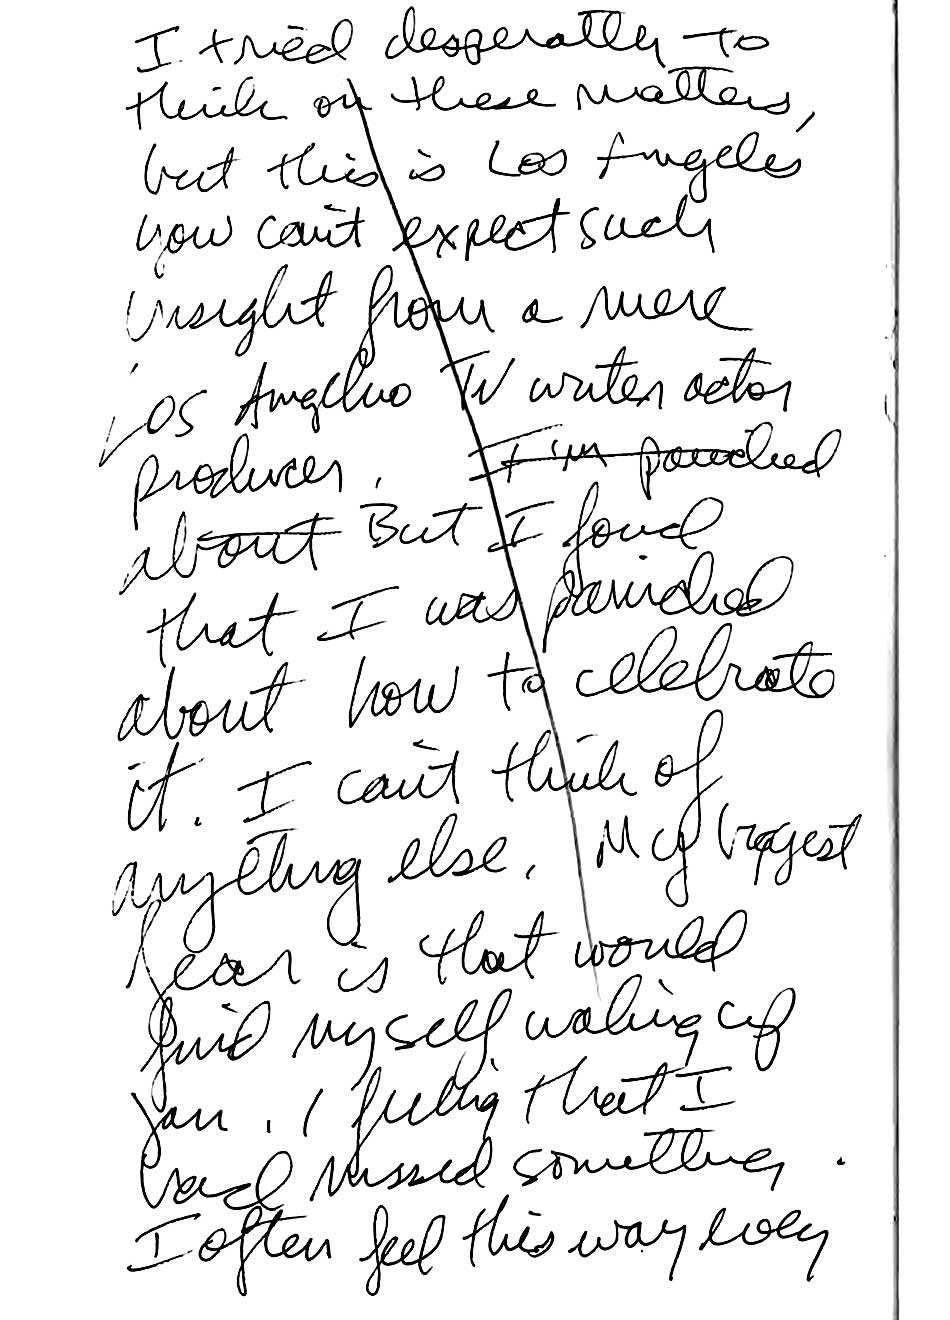 I tried desperatly to
think on these matters,
but this is Los Angeles
you can't expect such
insight from a mere
Los Angelino TV writer actor
producer. I'm paniched
about But I foud
that I was paniched
about how to celebrate
it. I can't think of
anything else. My biggest
fear is that would
find myself waking up
Jan. 1 feeling that I
had missed something.
I often feel this way every